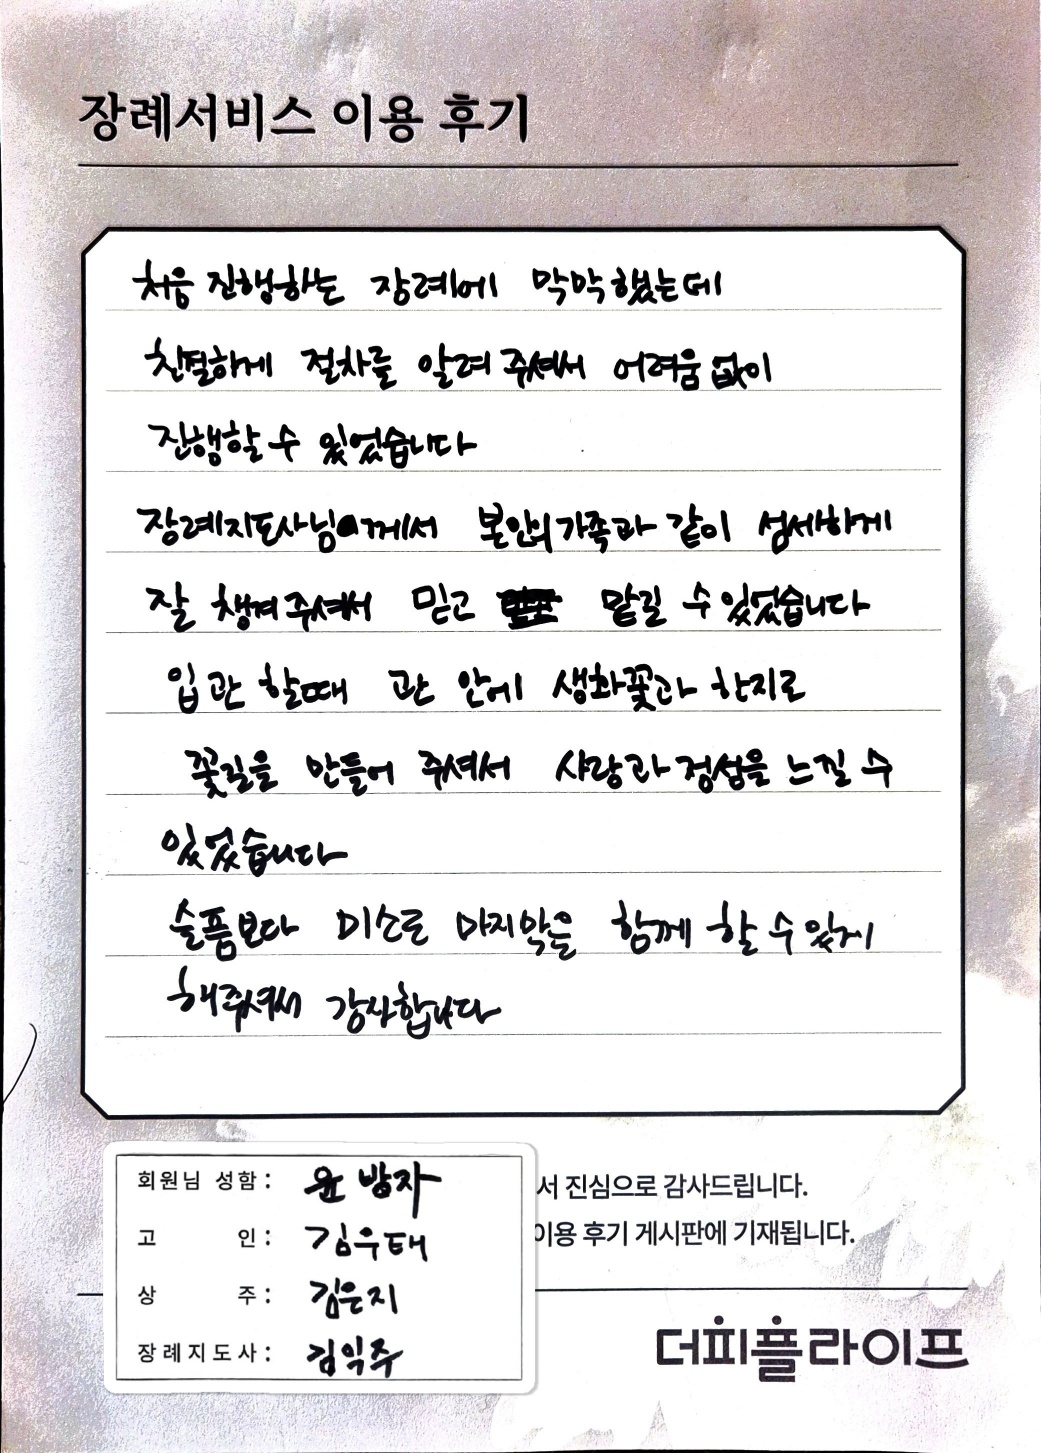 장례서비스 이용 후기
처음 진행하는 장례에 막막했는데
친절하게 절차를 알려주셔서 어려움 없이
진행할 수 있었습니다
장례지도사님께서 본인의 가족과 같이 섬세하게
잘 챙겨주셔서 믿고 맡길 수 있었습니다
입관 할때 관 안에 생화꽃과 한지로
꽃길을 만들어 주셔서 사랑과 정성을 느낄 수
있었습니다
슬픔보다 미소로 마지막을 함께 할 수 있게
해주셔서 감사합니다
회원님 성함: 윤방자
고 인: 김우태
상 주: 김은지
장례지도사: 김익주
서 진심으로 감사드립니다.
이용 후기 게시판에 기재됩니다.
더피플라이프